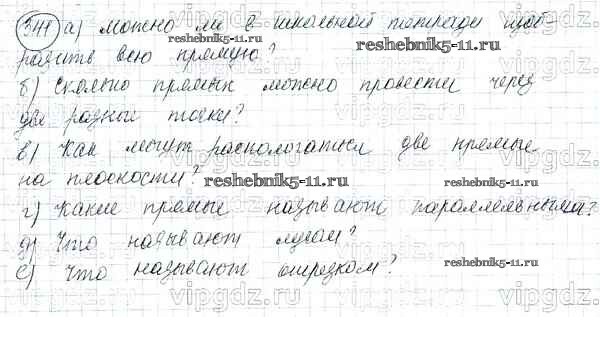 341 а) можно ли в школьной тетради изоб-
разить всю прямую?
б) Сколько прямых можно провести через
две разные точки?
в) Как могут распологаться две прямые
на плоскости?
г) Какие прямые называют параллельными?
д) Что называют лучом?
е) Что называют отрезком?
reshebnik5-11.ru
reshebnik5-11.ru
reshebnik5-11.ru
reshebnik5-11.ru
reshebnik5-11.ru
reshebnik5-11.ru
vipgdz.ru
vipgdz.ru
vipgdz.ru